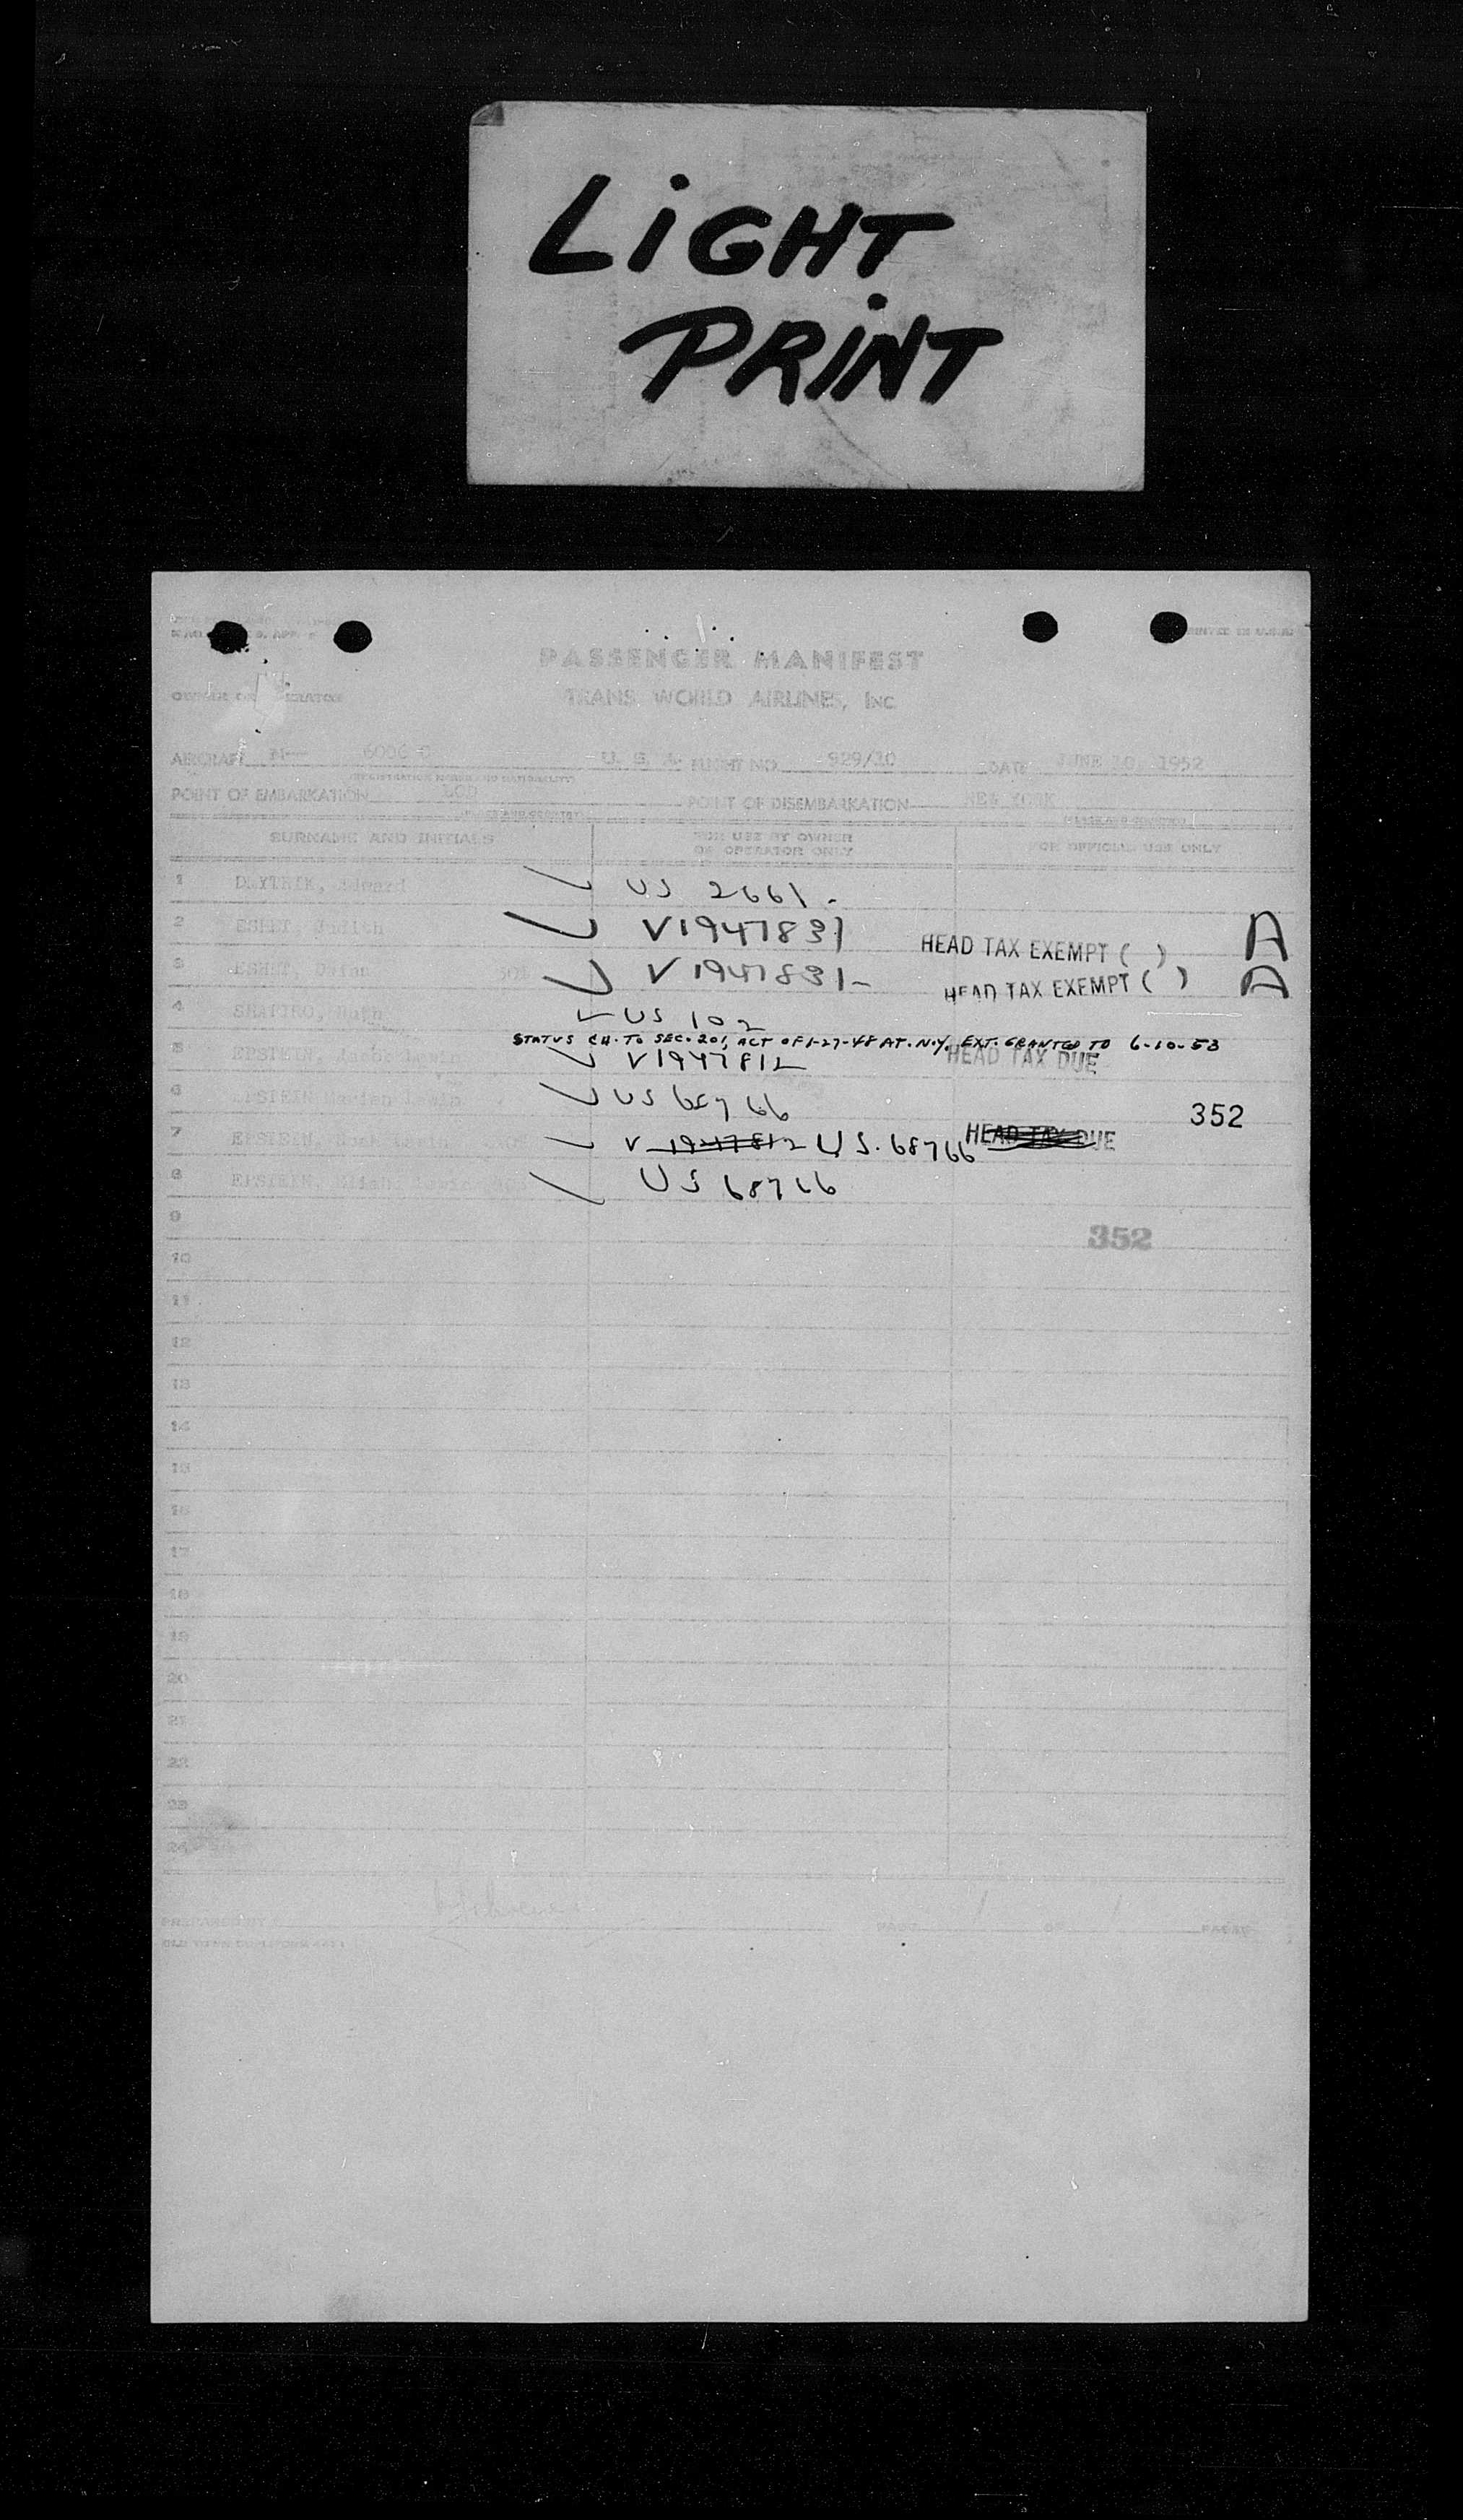 LiGHT
PRiNT
PASSENGER MANIFEST
TRANS WORLD AIRLINES, INC
AIRCRAFT N U. S. A. FLIGHT NO. 929/10 DATE JUNE 10, 1952
POINT OF EMBARKATION LOD POINT OF DISEMBARKATION NEW YORK
SURNAME AND INITIALS FOR USE BY OWNER OR OPERATOR ONLY FOR OFFICIAL USE ONLY
1 DMYTRIK, Edward US 2661.
2 ESHET, Judith V1947831 HEAD TAX EXEMPT ( ) A
3 ESHET, V1947831- HEAD TAX EXEMPT ( ) A
4 SHAPIRO, Ruth US 102
STATUS CH. TO SEC. 201, ACT OF 1-27-48 AT. N.Y. EXT. GRANTED TO 6-10-53
5 EPSTEIN, V1947812 HEAD TAX DUE
6 EPSTEIN Lewin US 68766 352
7 EPSTEIN, V 1947812 US. 68766 HEAD TAX DUE
8 EPSTEIN, US 68766
9
352
10
11
12
13
14
15
16
17
18
19
20
21
22
23
24
PREPARED BY PAGE 1 OF 1 PAGES